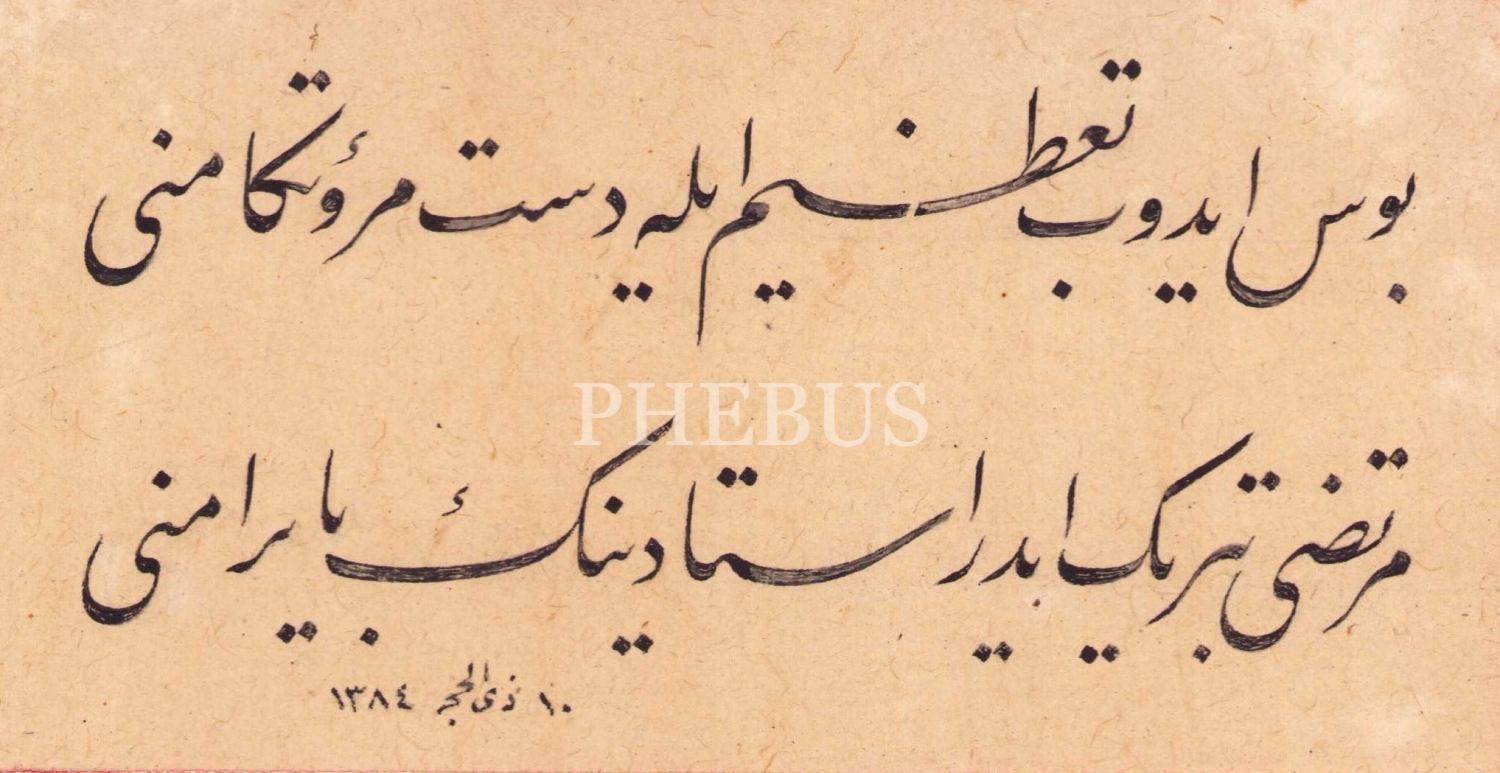 بوس ایدوب تعظیم ایله دست مرؤتکامنی
PHEBUS
مرتضی تبریک ایدر استادینک بایرامنی
١٠ ذی الحجه ١٣٨٤